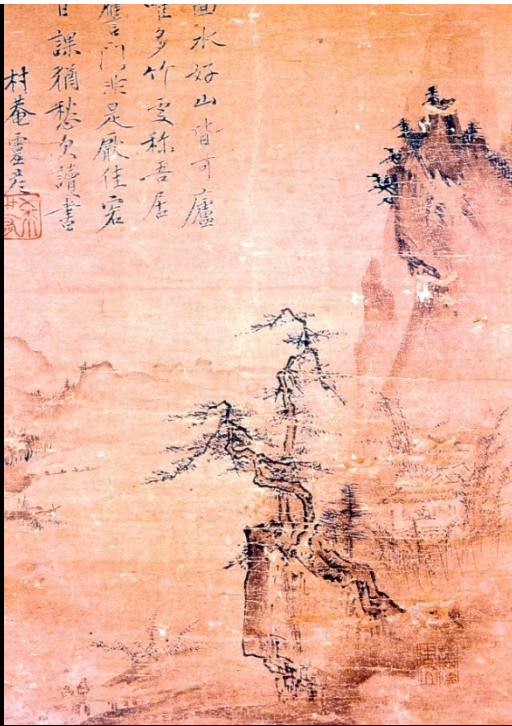 水好山皆可廬
唯多竹處称吾居
應門非是厭佳客
日課猶愁欠讀書
村菴靈彦